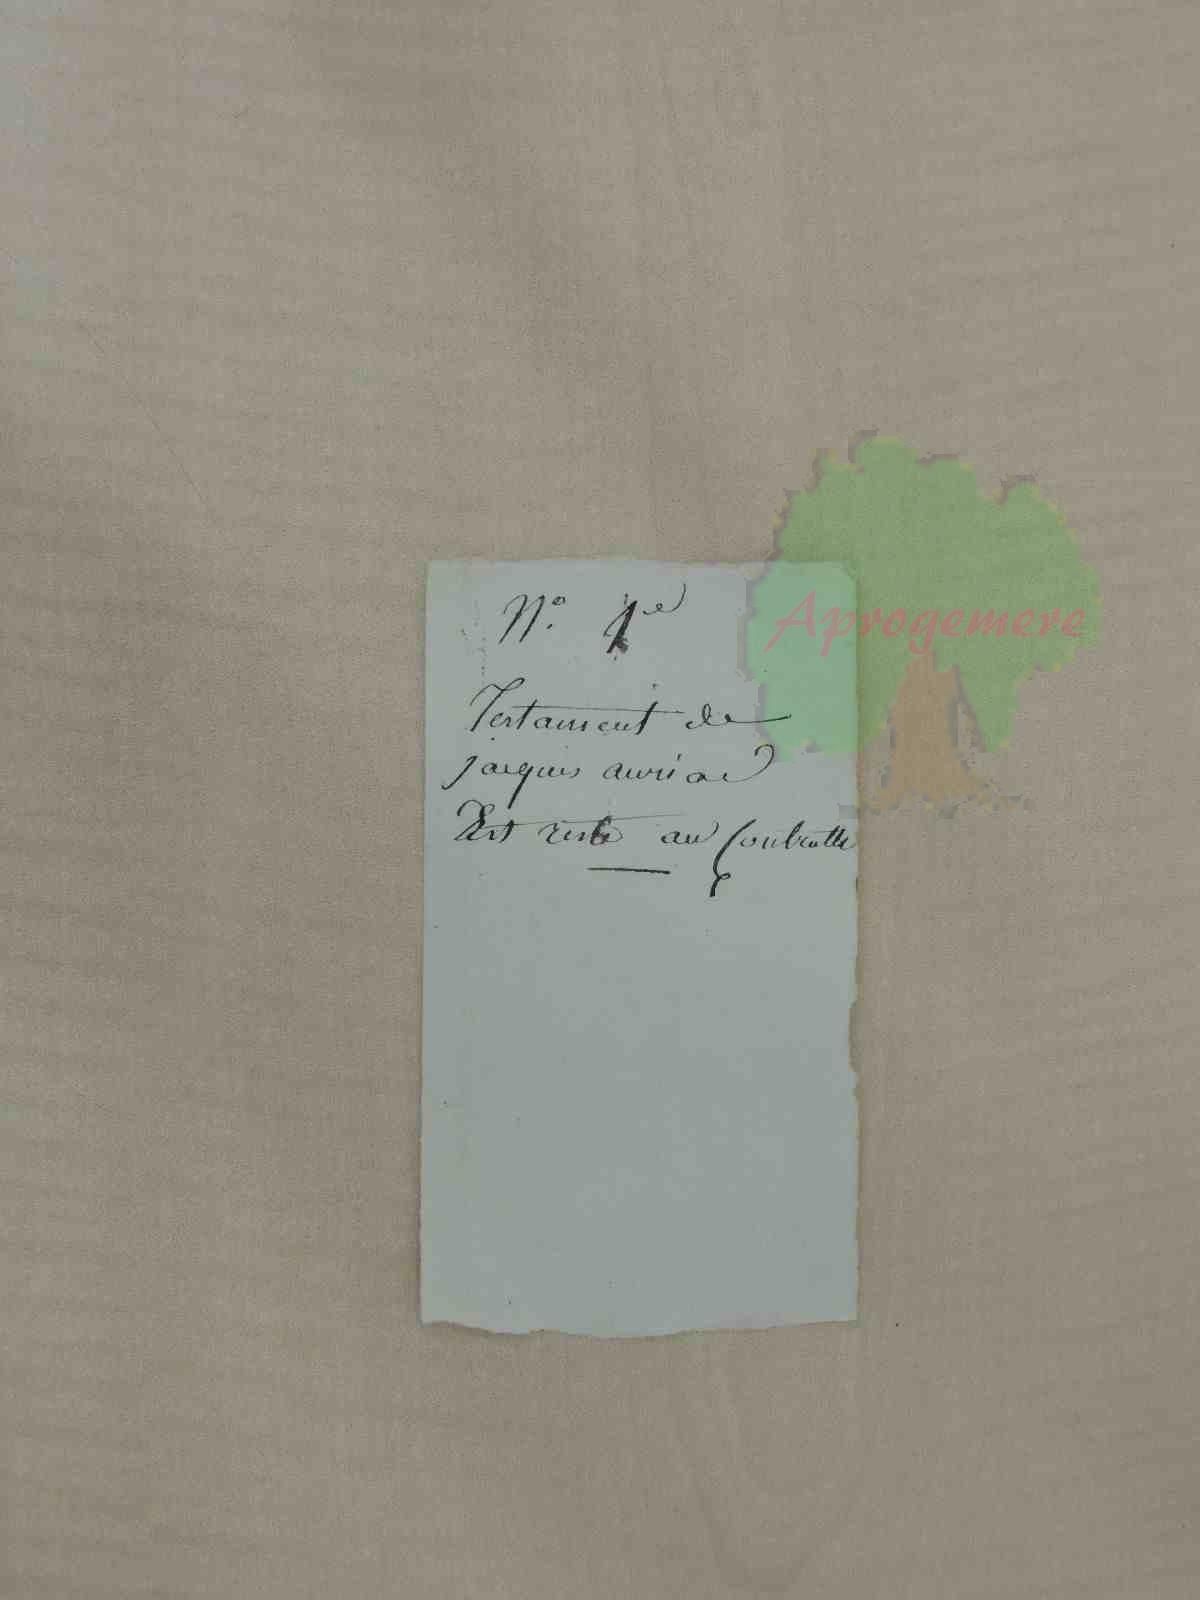 N.º 1er
Aprogemere
Testament de
jacques auriac
Est resté au Controlle